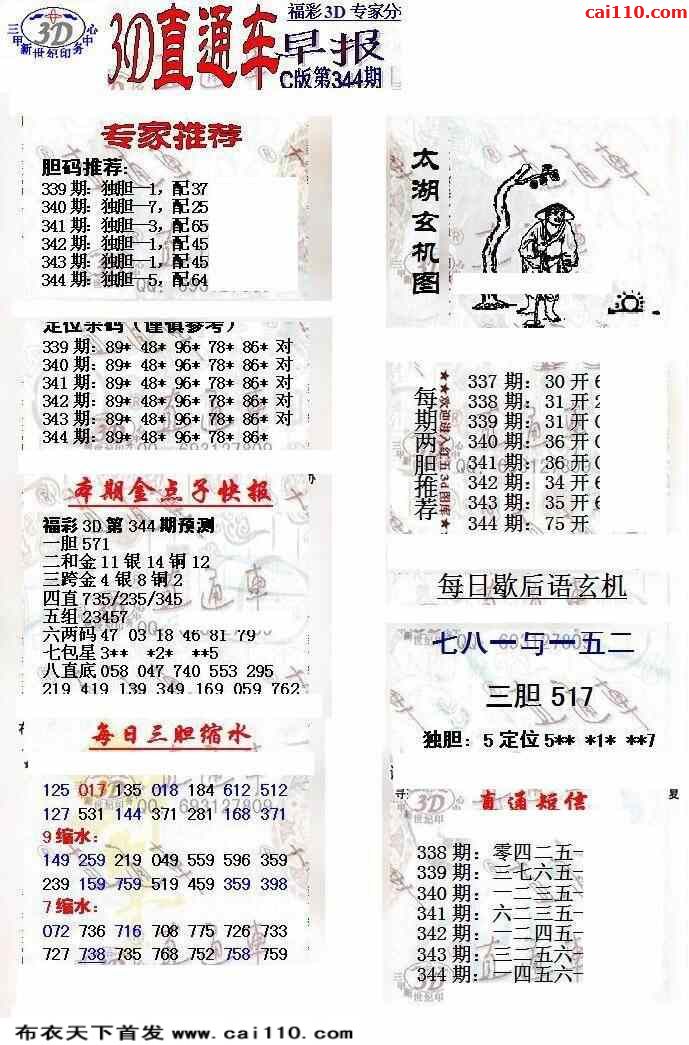 福彩3D专家分
cai110.com
三甲 3D 中心
新世纪印务
3D直通车
早报
C版第344期
专家推荐
胆码推荐:
339期: 独胆—1, 配37
340期: 独胆—7, 配25
341期: 独胆—3, 配65
342期: 独胆—1, 配45
343期: 独胆—1, 配45
344期: 独胆—5, 配64
定位杀码（谨慎参考）
339期: 89* 48* 96* 78* 86* 对
340期: 89* 48* 96* 78* 86* 对
341期: 89* 48* 96* 78* 86* 对
342期: 89* 48* 96* 78* 86* 对
343期: 89* 48* 96* 78* 86* 对
344期: 89* 48* 96* 78* 86*
本期金点子快报
福彩3D第344期预测
一胆571
二和金11银14铜12
三跨金4银8铜2
四直735/235/345
五组23457
六两码47 03 18 46 81 79
七包星3** *2* **5
八直底058 047 740 553 295
219 419 139 349 169 059 762
每日三胆缩水
125 017 135 018 184 612 512
127 531 144 371 281 168 371
9缩水:
149 259 219 049 559 596 359
239 159 759 519 459 359 398
7缩水:
072 736 716 708 775 726 733
727 738 735 768 752 758 759
太湖玄机图
每期两胆推荐
★★欢迎进入红五3d图库★
337期: 30开6
338期: 31开2
339期: 31开0
340期: 36开0
341期: 36开0
342期: 34开6
343期: 35开6
344期: 75开
每日歇后语玄机
七八一与一五二
三胆 517
独胆: 5 定位5** *1* **7
直通短信
338期: 零四二五一
339期: 三七六五一
340期: 一二三五一
341期: 六二三五一
342期: 一二四五一
343期: 三二五六一
344期: 一四五六一
布衣天下首发 www.cai110.com